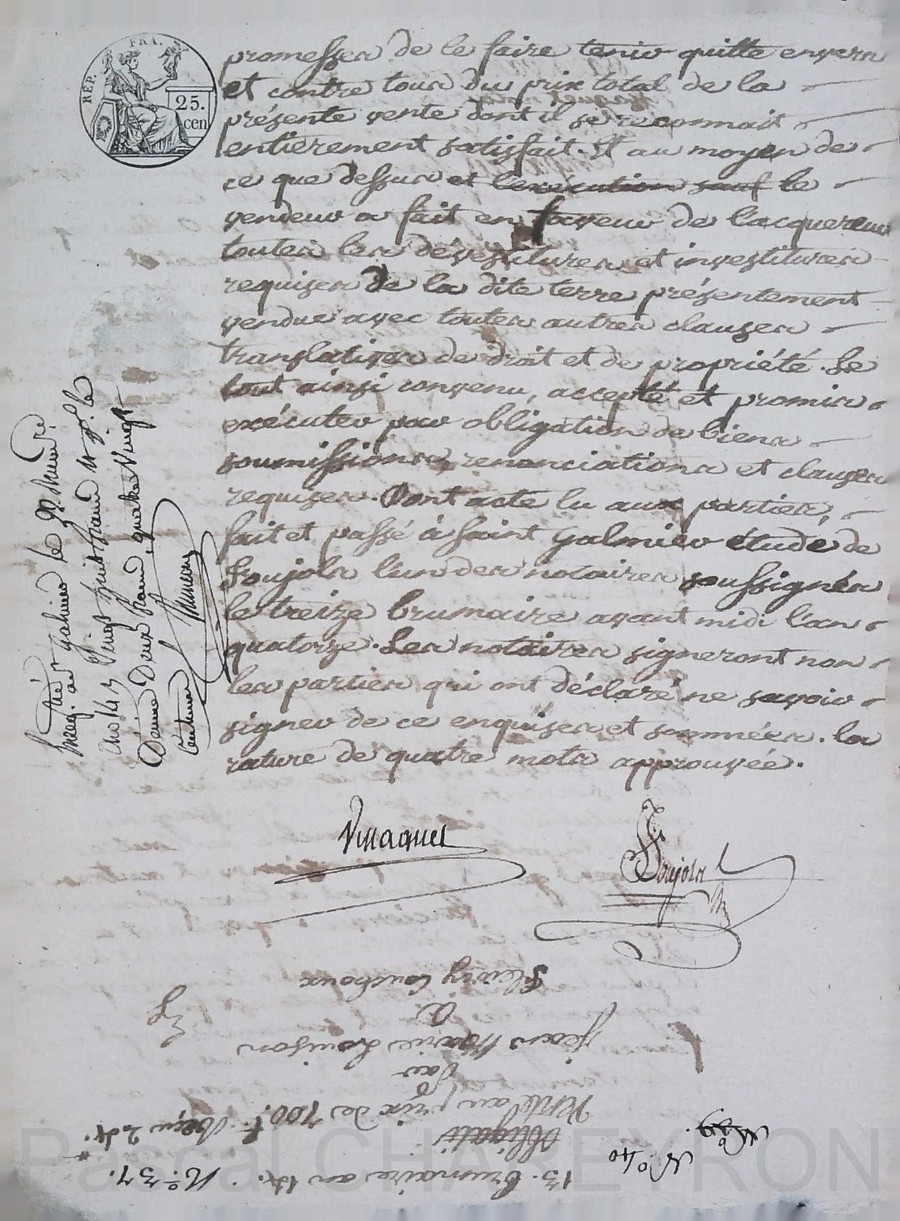 REP. FRA.
25.
cen
promesses de le faire tenir quitte envers
et contre tous du prix total de la
présente vente dont il se reconnait
entièrement satisfait. Et au moyen de
ce que dessus et l'exécution sauf le
vendeur a fait en faveur de l'acquereur
toutes les dévestitures et investitures
requises de la dite terre présentement
vendue avec toutes autres clauses
translatives de droit et de propriété. Le
tout ainsi convenu, accepté et promis
exécuter par obligation de biens
soumissions, renonciations et clauses
requises. Dont acte lu aux parties,
fait et passé à saint galmier étude de
Soujols l'un des notaires soussignés
le treize brumaire avant midi l'an
quatorze. Les notaires signeront non
les parties qui ont déclaré ne savoir
signer de ce enquises et sommées. la
rature de quatre mots approuvée.
Soujols
Enreg. à St galmier le 22
deux francs quatre vingt
centimes
13. brumaire an 14. N.° 37.
Obligatn
Vente au prix de 700 f. Reçu 2 f.
Par
Jean Marie Louison
à
Fleury Couchoux
N.° 40